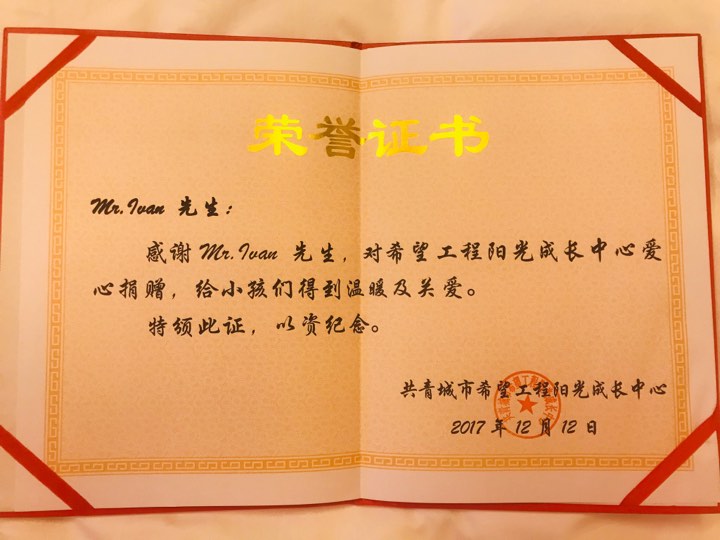 荣誉证书
Mr.Ivan 先生：
感谢 Mr.Ivan 先生，对希望工程阳光成长中心爱
心捐赠，给小孩们得到温暖及关爱。
特颁此证，以资纪念。
共青城市希望工程阳光成长中心
2017 年 12 月 12 日